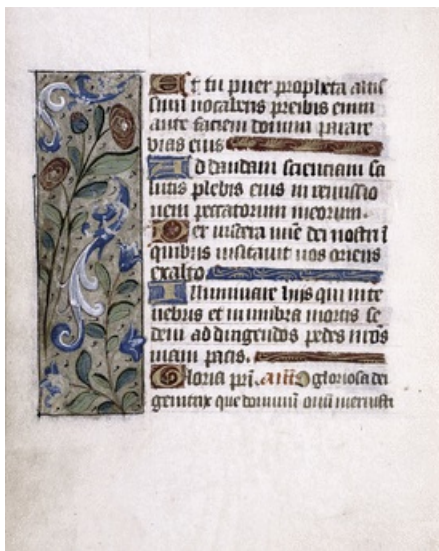 Et tu puer propheta altis
simi vocaberis preibis enim
ante faciem domini parare
vias eius
Ad dandam scienciam sa
lutis plebis eius in remissio
nem peccatorum meorum.
Per viscera mīe dei nostri ī
quibus visitavit nos oriens
ex alto
Illuminare hiis qui in te
nebris et in umbra mortis se
dent ad dirigendos pedes nros̄
in viam pacis.
Gloria pri. añ O gloriosa dei
genitrix que dominū